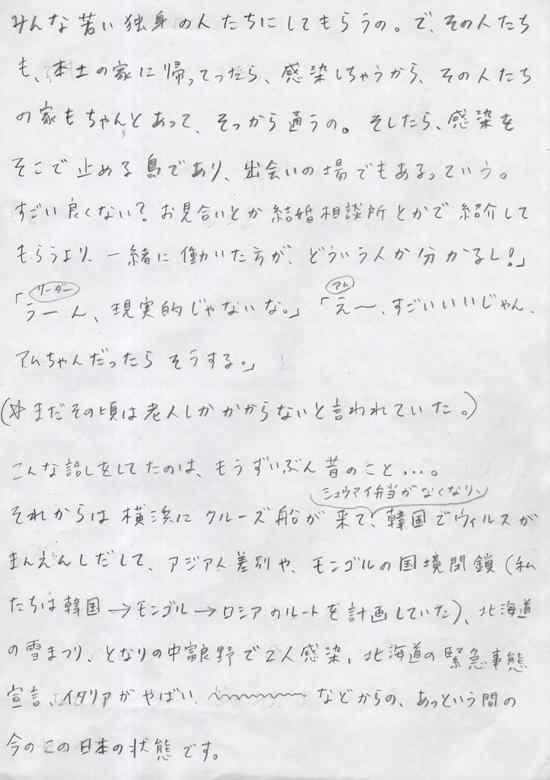 みんな若い独身の人たちにしてもらうの。で、その人たち
も、本土の家に帰ってったら、感染しちゃうから、その人たち
の家もちゃんとあって、そっから通うの。そしたら、感染を
そこで止める島であり、出会いの場でもあるっていう。
すごい良くない?お見合いとか結婚相談所とかで紹介して
もらうより、一緒に働いた方が、どういう人か分かるし!」
リーダー アム
「うーん、現実的じゃないな。」「え〜、すごいいいじゃん、
アムちゃんだったらそうする。」
(※まだその頃は老人しかかからないと言われていた。)
こんな話しをしてたのは、もうずいぶん昔のこと…。
シュウマイ弁当がなくなり
それからは横浜にクルーズ船が来て、韓国でウィルスが
まんえんしだして、アジア人差別や、モンゴルの国境閉鎖(私
たちは韓国→モンゴル→ロシアのルートを計画していた)、北海道
の雪まつり、となりの中富良野で2人感染、北海道の緊急事態
宣言、イタリアがやばい、〜〜〜〜〜などからの、あっという間の
今のこの日本の状態です。